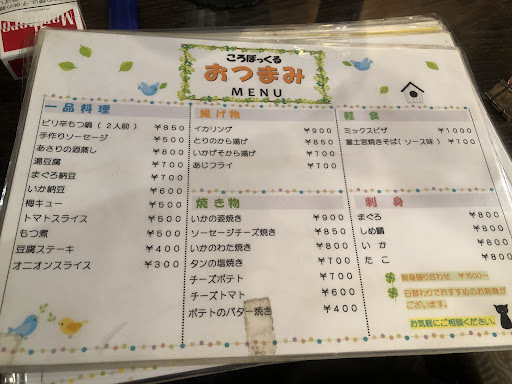 Marlboro
ころぽっくる
おつまみ
MENU
一品料理
ピリ辛もつ鍋（2人前） ￥850
手作りソーセージ ￥500
あさりの酒蒸し ￥800
湯豆腐 ￥700
まぐろ納豆 ￥700
いか納豆 ￥600
梅キュー ￥500
トマトスライス ￥500
もつ煮 ￥500
豆腐ステーキ ￥400
オニオンスライス ￥300
揚げ物
イカリング ￥900
とりのから揚げ ￥850
いかげそから揚げ ￥700
あじフライ ￥700
焼き物
いかの姿焼き ￥900
ソーセージチーズ焼き ￥850
いかのわた焼き ￥800
タンの塩焼き ￥700
チーズポテト ￥700
チーズトマト ￥600
ポテトのバター焼き ￥400
軽食
ミックスピザ ￥1000
富士宮焼きそば（ソース味） ￥700
刺身
まぐろ ￥800
しめ鯖 ￥800
いか ￥800
たこ ￥800
刺身盛り合わせ ￥1500〜
日替わりでおすすめのお刺身が
ございます。
お気軽にご相談ください。